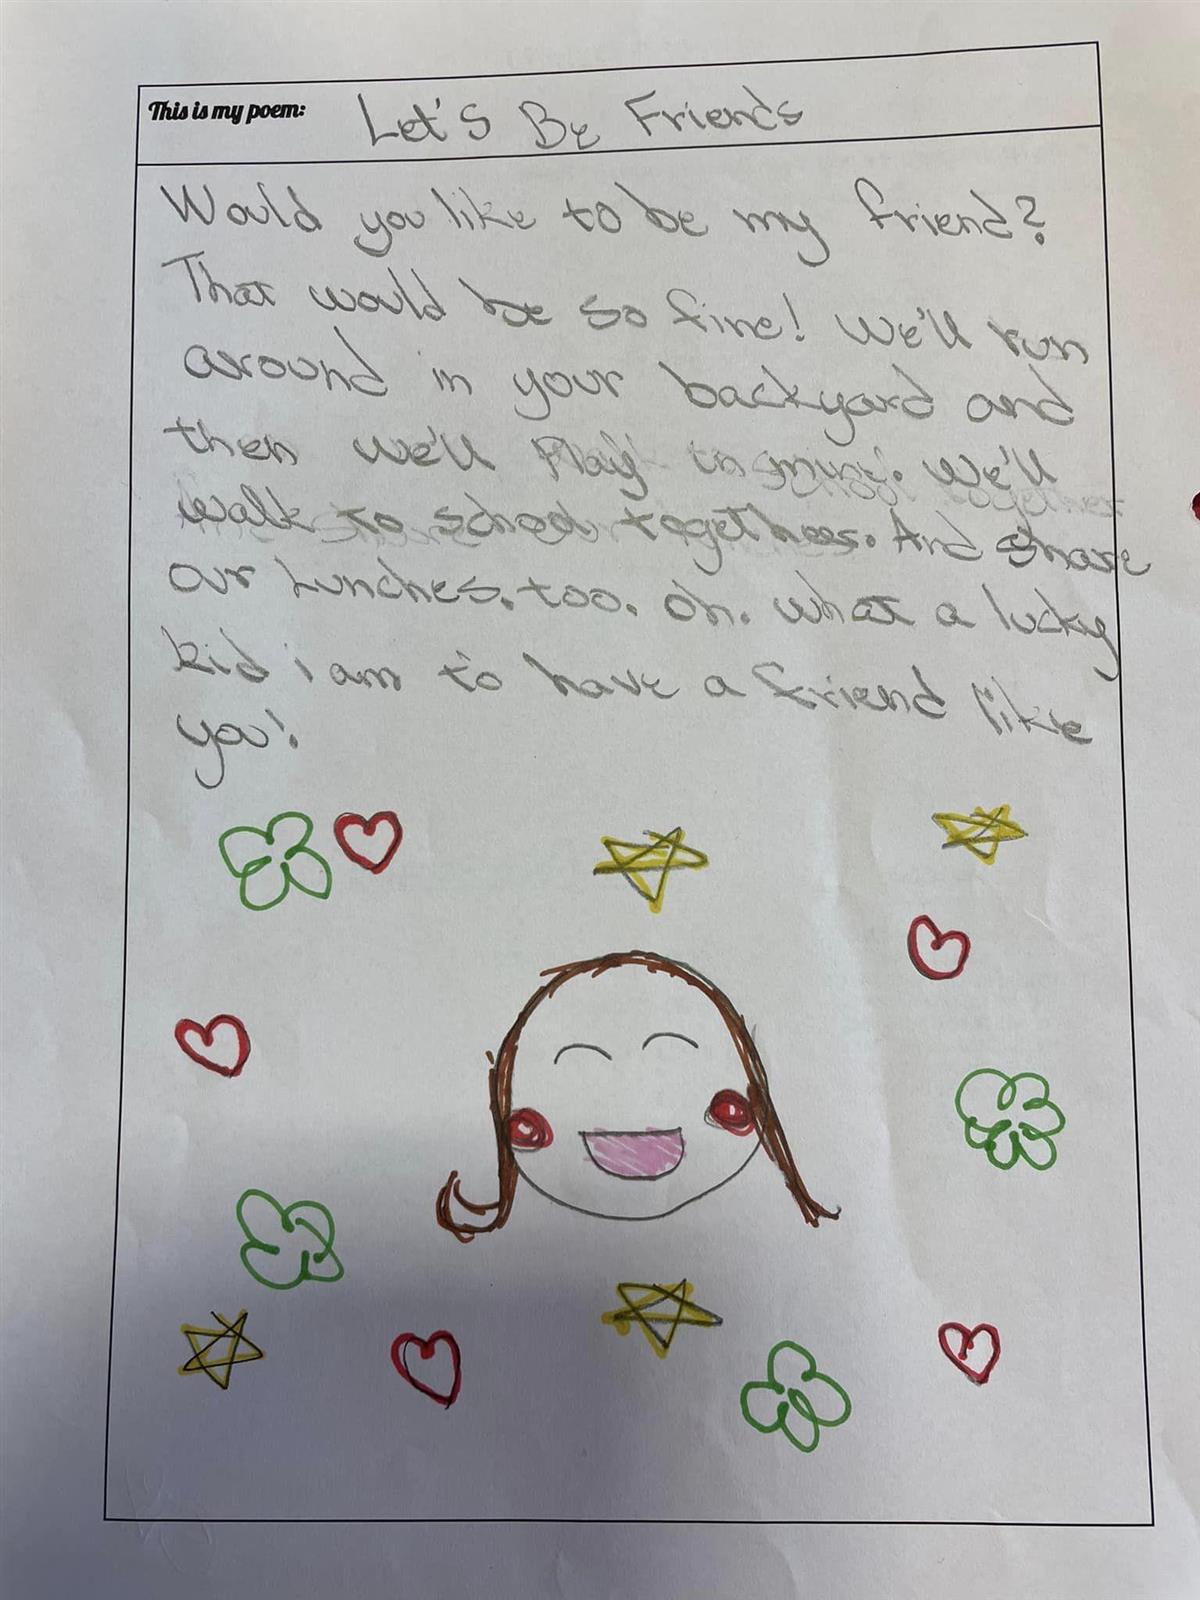 This is my poem: Let's Be Friends
Would you like to be my friend?
That would be so fine! We'll run
around in your backyard and
then we'll Play in mine. We'll
walk to school together. And share
our Lunches. too. oh. what a lucky
kid i am to have a friend like
you!